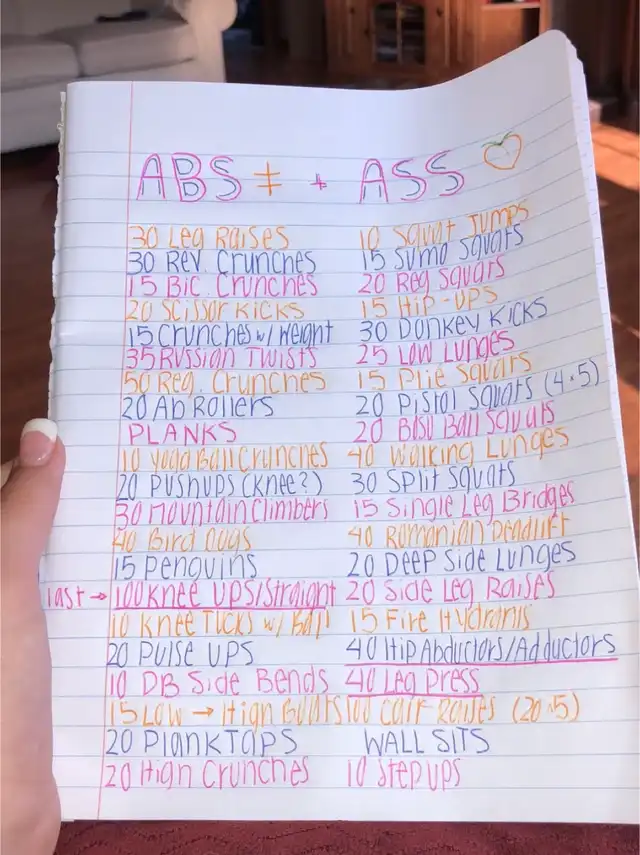 ABS ‡ + ASS
30 Leg Raises
30 Rev. Crunches
15 Bic. Crunches
20 Scissor Kicks
15 Crunches w/ Weight
35 Russian Twists
50 Reg. Crunches
20 Ab Rollers
PLANKS
10 Yoga Ball Crunches
20 Pushups (Knee?)
30 Mountain Climbers
40 Bird Dogs
15 Penguins
last → 100 Knee Ups/Straight
10 Knee Tucks w/ Ball
20 Pulse Ups
10 DB Side Bends
15 Low → High Boats
20 Plank Taps
20 High Crunches
10 Squat Jumps
15 Sumo Squats
20 Reg Squats
15 Hip-Ups
30 Donkey Kicks
25 Low Lunges
15 Plie Squats
20 Pistol Squats (4·5)
20 Bosu Ball Squats
40 Walking Lunges
30 Split Squats
15 Single Leg Bridges
40 Romanian Deadlift
20 Deep Side Lunges
20 Side Leg Raises
15 Fire Hydrants
40 Hip Abductors/Adductors
40 Leg Press
100 Calf Raises (20·5)
WALL SITS
10 Step ups